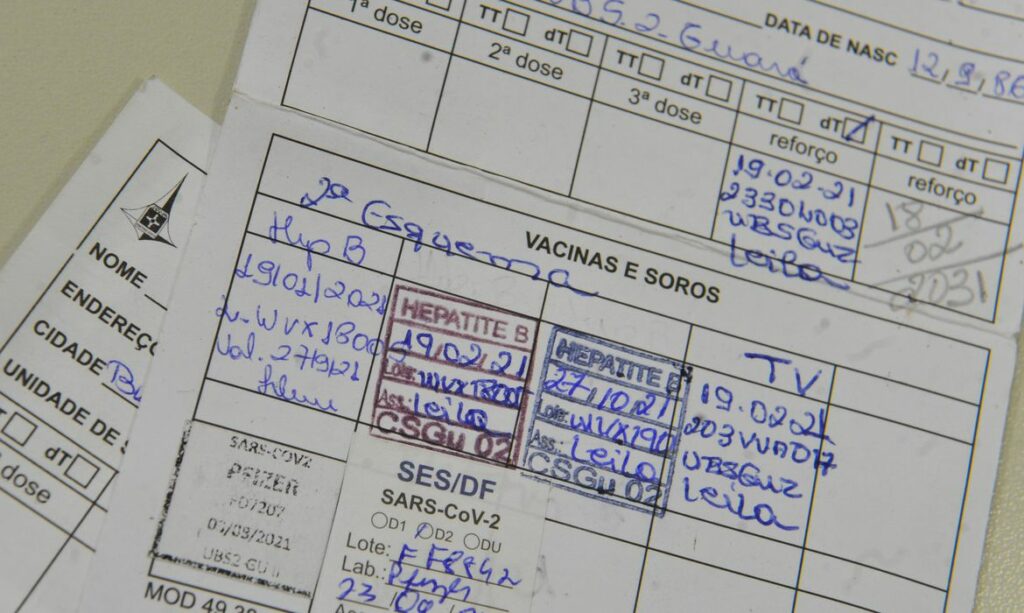 UBS.2-Guará
DATA DE NASC 12,9,86
1ª dose
TT dT
2ª dose
TT dT
3ª dose
TT dT
reforço
19-02-21
UBSGUZ
Leila
TT dT
reforço
18
02
2031
VACINAS E SOROS
2ª Esquema
Hep B
19/01/2021
Val. 27/9/21
HEPATITE B
19/02/21
Lote:
Ass.: Leila
CSGu 02
HEPATITE B
27/10/21
Lote: WVX190
Ass.: Leila
CSGu 02
TV
19.02.21
UBSGUZ
Leila
SARS-COV2
PFIZER
UBS2-GU II
SES/DF
SARS-CoV-2
D1 D2 DU
Lote:
Lab.:
23
MOD 49.
NOME
ENDEREÇO
CIDADE
UNIDADE DE S
dT
dose